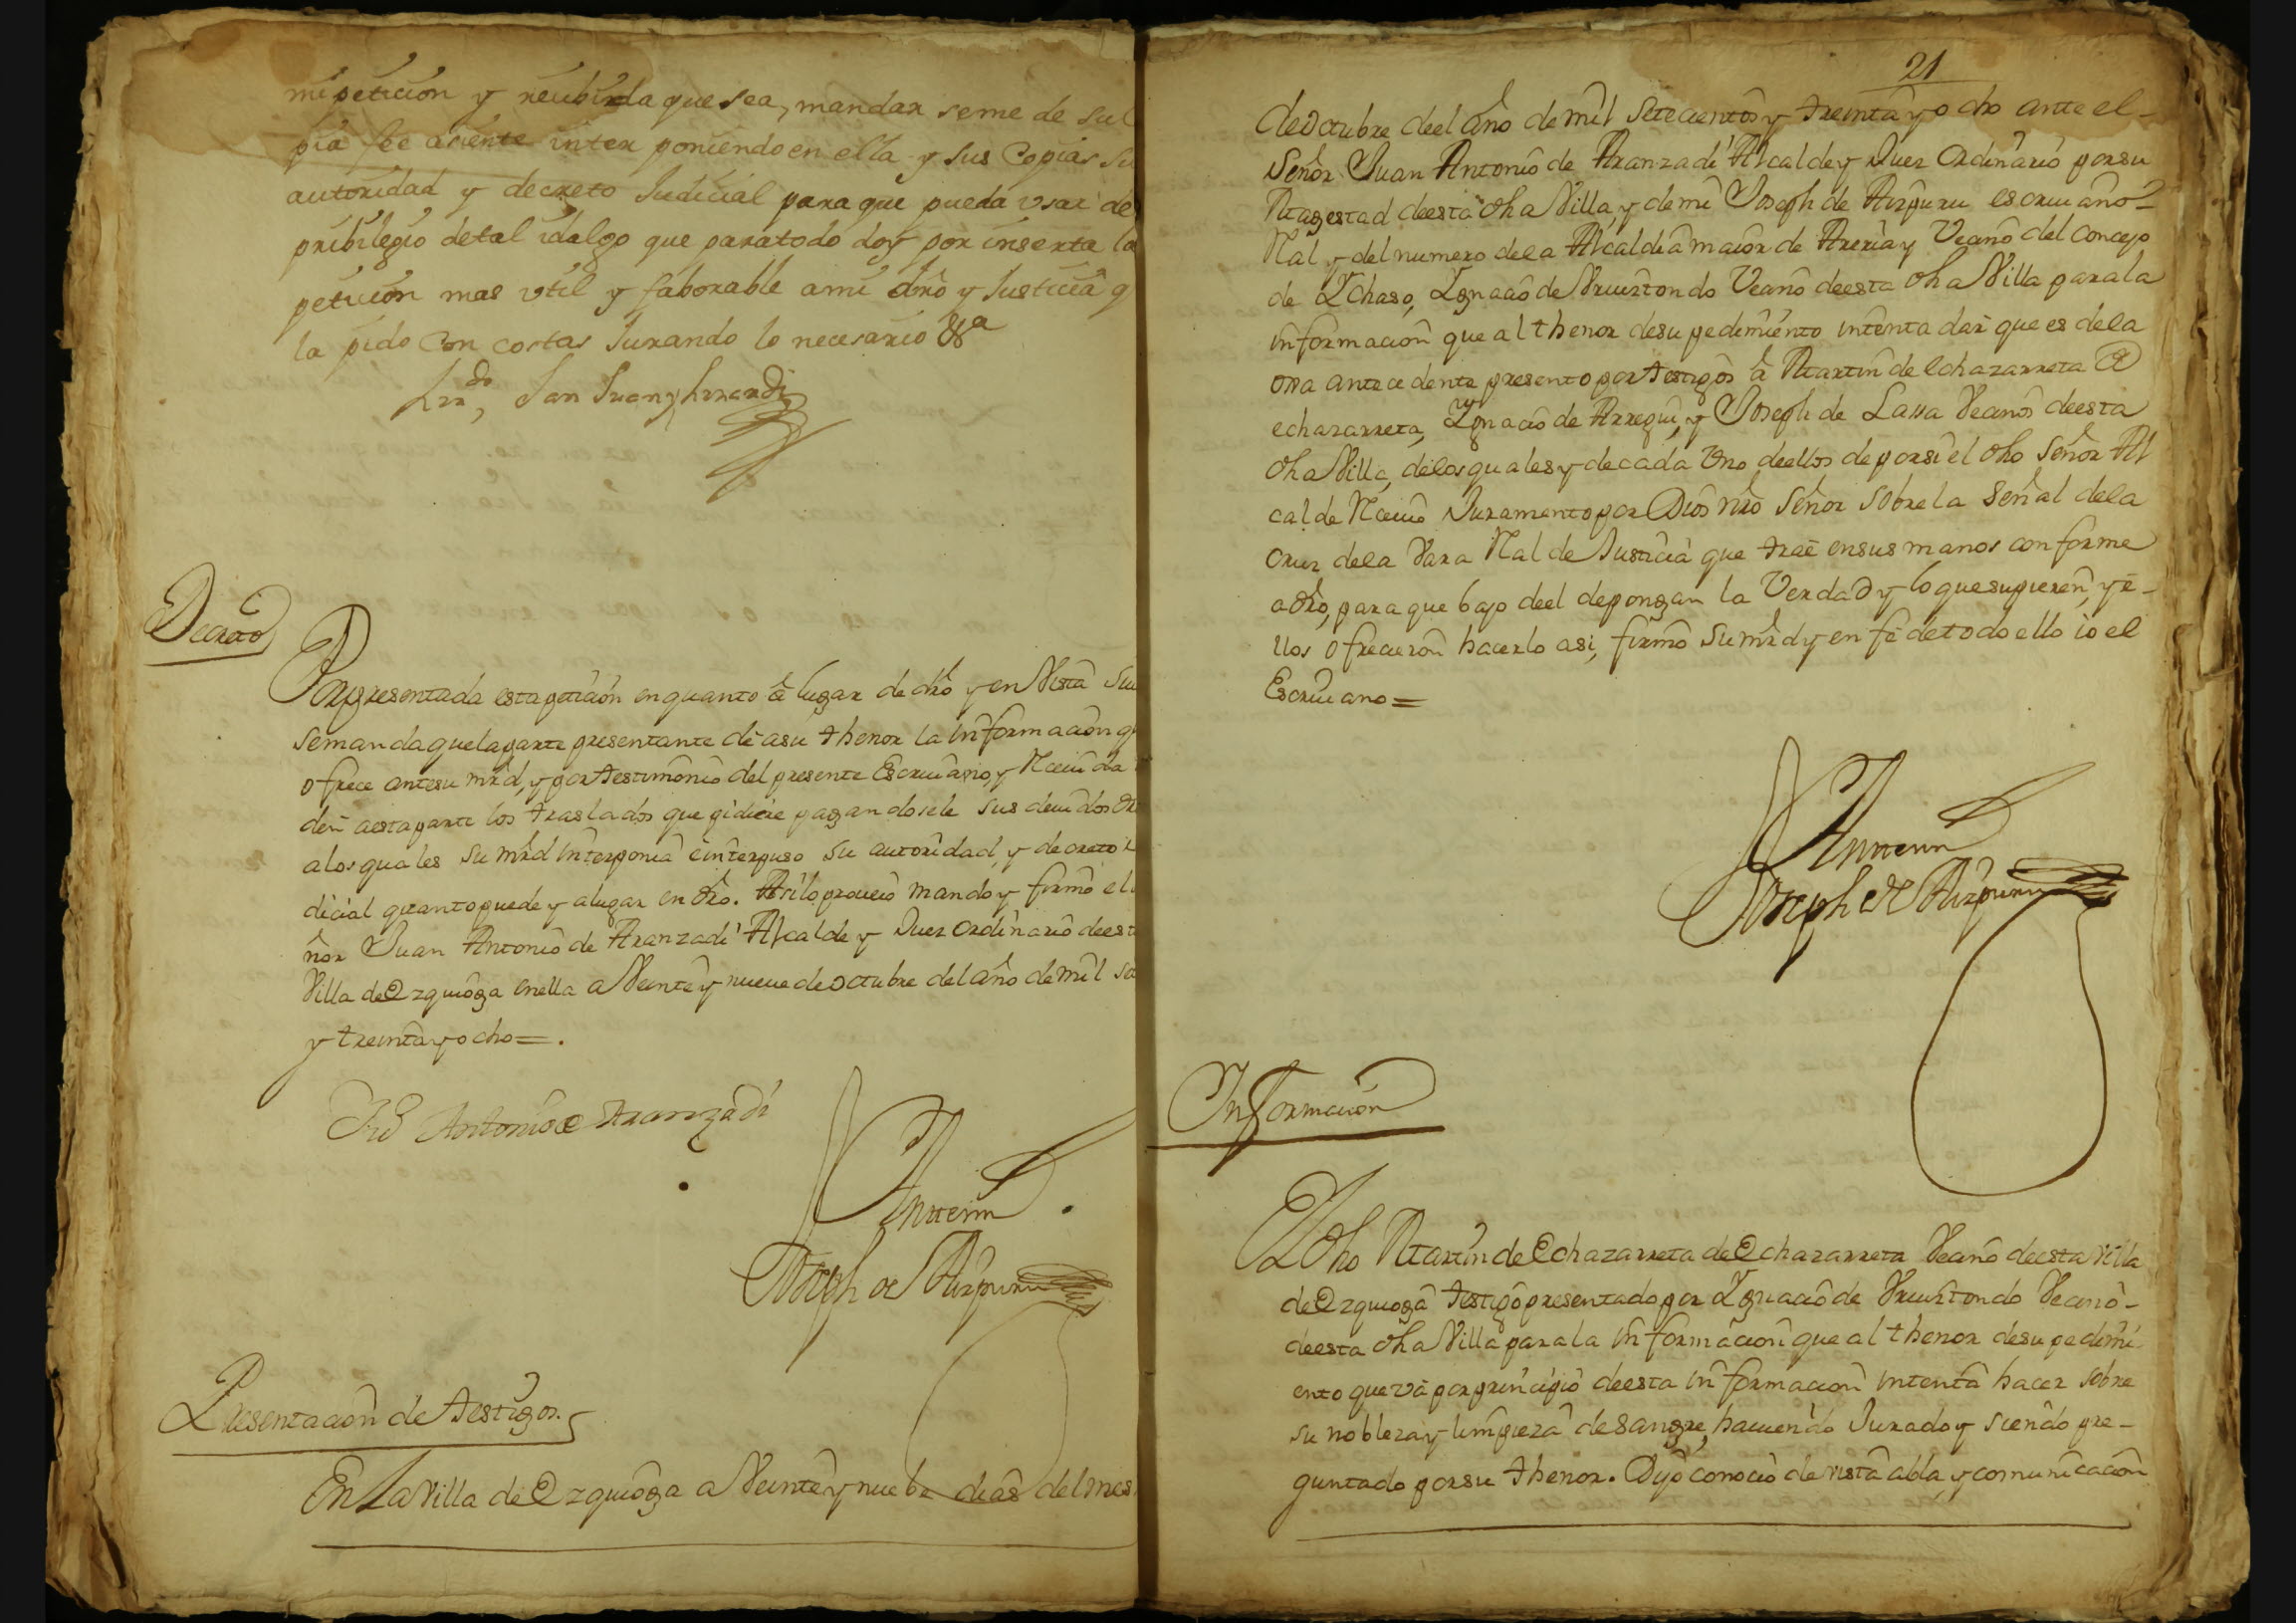 mi petición y recibirla que sea, mandar se me de su
pia fee aciente inter poniendo en ella y sus Copias su
autoridad y decreto Judicial para que pueda vsar de
pribilegio de tal idalgo que para todo doy por inserta la
petición mas vtil y faborable a mi dro y Justicia q
la pido Con costas Jurando lo necesario &a
Lizdo San Juan y
Decreto
Por presentada esta petición en quanto à lugar de dro y en Vista su
se manda que la parte presentante dé a su thenor la informazon q
ofrece ante su mrd, y por testimonio del presente Escriuano, y Receuida
den a esta parte los traslados que pidiere pagandosele sus deuidos dr
a los quales su mrd interponia e interpuso su autoridad, y decreto
dicial quanto puede y a lugar en dro. Asilo proueió mando y firmó el
ñor Juan Antonio de Aranzadi Alcalde y Juez Ordinario de est
Villa de Ezquioga en ella a Veinte y nueue de octubre del año de mil se
y treinta y ocho =.
Jn Antonio de Aranzadi
Ante mi
Joseph de Aizpuru
Presentacion de testigos.
En La Villa de Ezquioga a Veinte y nuebe dias del mes
21
de octubre de el año de mil setecientos y treinta y ocho ante el
Señor Juan Antonio de Aranzadi Alcalde y Juez Ordinario por su
Magestad de esta dha Villa, y de mi Joseph de Aizpuru escriuano
Ral y del numero de la Alcaldia maior de Areria y Vecino del concejo
de Ichaso, Ignacio de Vruiztondo Vecino de esta dha Villa para la
información que al thenor de su pedimiento intenta dar que es de la
oxa antecedente presento por testigos à Martin de Echazarreta de
echazarreta, Ignacio de Arregui, y Joseph de Lasa Vecinos de esta
dha Villa, de los quales y de cada Vno de ellos de por si el dho Señor Al
calde Receuio Juramento por Dios nro Señor sobre la señal de la
cruz de la Vara Ral de Justicia que trae en sus manos conforme
a dro, para que bajo de el depongan la Verdad y lo que supieren, y e
llos ofrecieron hacerlo asi, firmó su mrd y en fé de todo ello io el
Escriuano =
Ante mi
Joseph de Aizpuru
Información
El dho Martin de Echazarreta de Echazarreta Vecino de esta villa
de Ezquioga testigo presentado por Ignacio de Vruiztondo Vecino
de esta dha Villa para la información que al thenor de su pedimi
ento que vá por principio de esta información intenta hacer sobre
su nobleza y limpieza de sangre, hauiendo Jurado y siendo pre
guntado por su thenor. Dijo conoció de vista abla, y comunicación